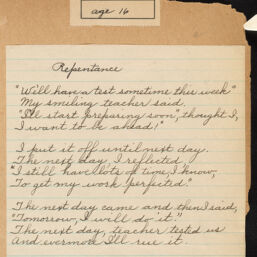 age 16
Repentance
"Will have a test sometime this week"
My smiling teacher said.
"I'll start preparing soon", thought I,
I want to be ahead!"
I put it off until next day.
The next day I reflected
"I still have lots of time, I know,
To get my work perfected."
The next day came and then I said,
"Tomorrow, I will do it."
The next day, teacher tested us
And evermore I'll rue it.